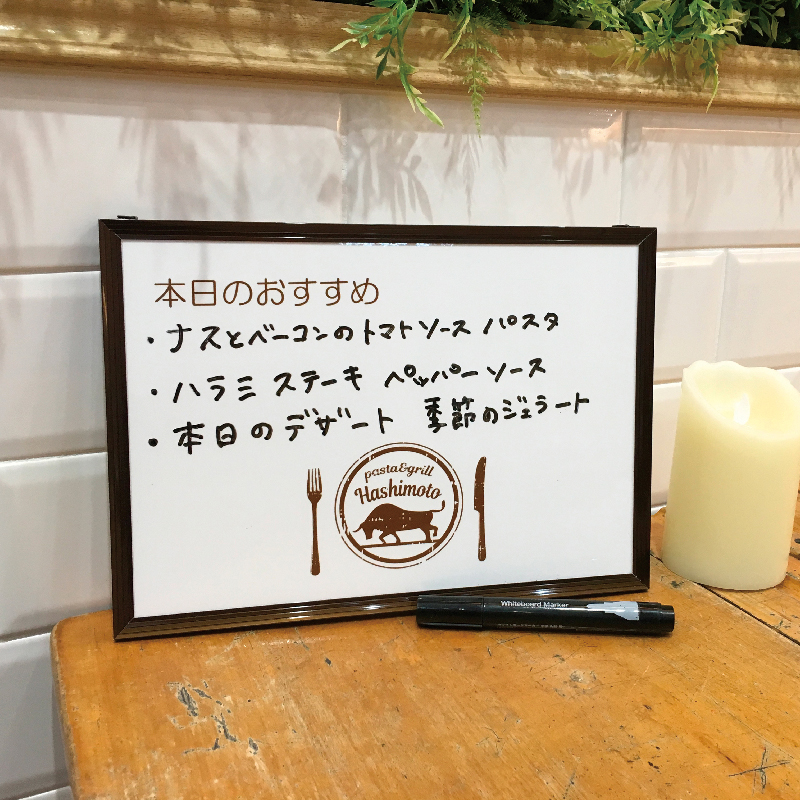 本日のおすすめ
・ナスとベーコンのトマトソース パスタ
・ハラミ ステーキ ペッパーソース
・本日のデザート 季節のジェラート
pasta&grill
Hashimoto
Whiteboard Marker